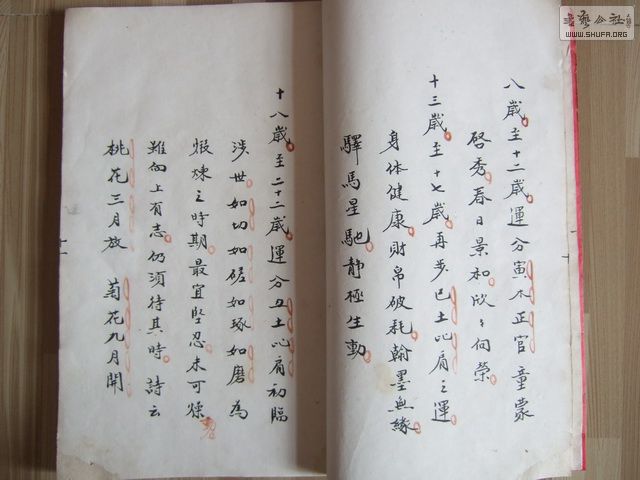 八歲至十二歲運分寅木正官童蒙
啓秀春日景和欣々向榮
十三歲至十七歲再步己土比肩之運
身体健康財帛破耗翰墨無緣
驛馬星馳靜極生動
十八歲至二十二歲運分丑土比肩初臨
涉世如切如磋如琢如磨為
煆煉之時期最宜堅忍未可燥
雖向上有志仍須待其時詩云
桃花三月放 菊花九月開
WWW.SHUFA.ORG